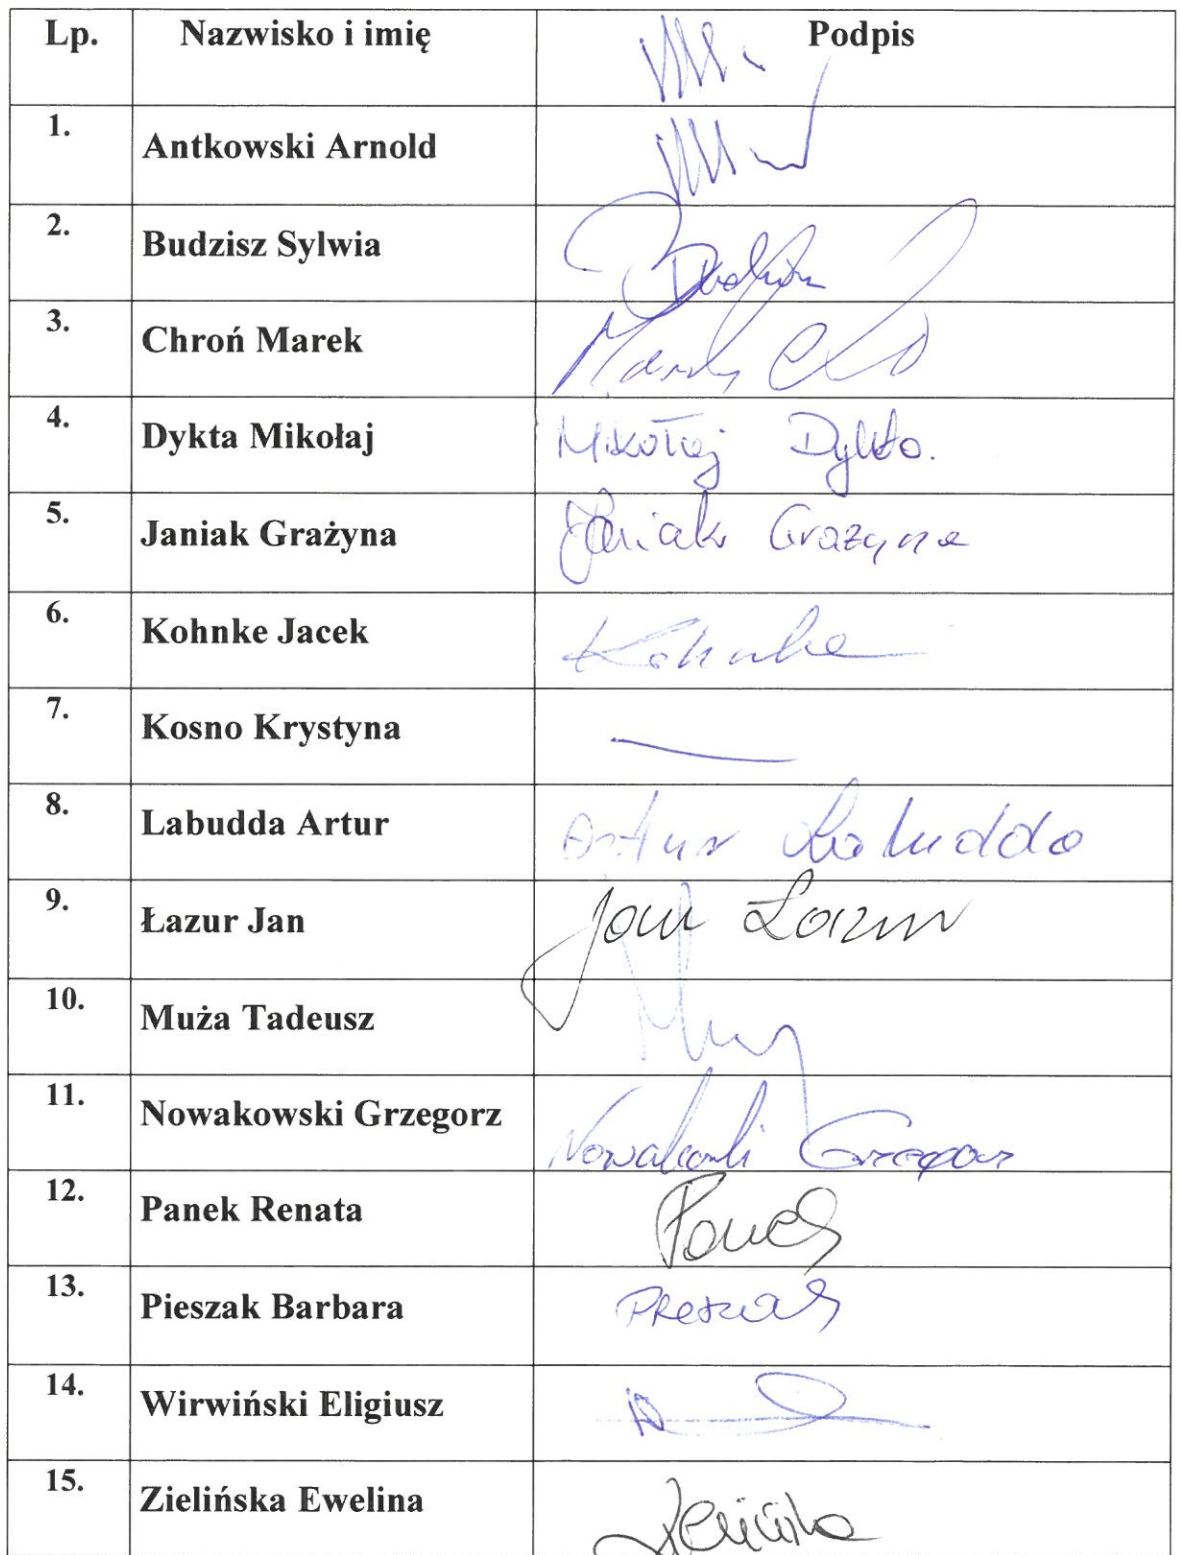 Lp. Nazwisko i imię Podpis
1. Antkowski Arnold
2. Budzisz Sylwia
3. Chroń Marek Marek
4. Dykta Mikołaj Mikołaj Dykta.
5. Janiak Grażyna Janiak Grażyna
6. Kohnke Jacek Kohnke
7. Kosno Krystyna
8. Labudda Artur Artur Labudda
9. Łazur Jan Jan Łazur
10. Muża Tadeusz
11. Nowakowski Grzegorz Nowakowski Grzegorz
12. Panek Renata Panek
13. Pieszak Barbara Pieszak
14. Wirwiński Eligiusz
15. Zielińska Ewelina Zielińska